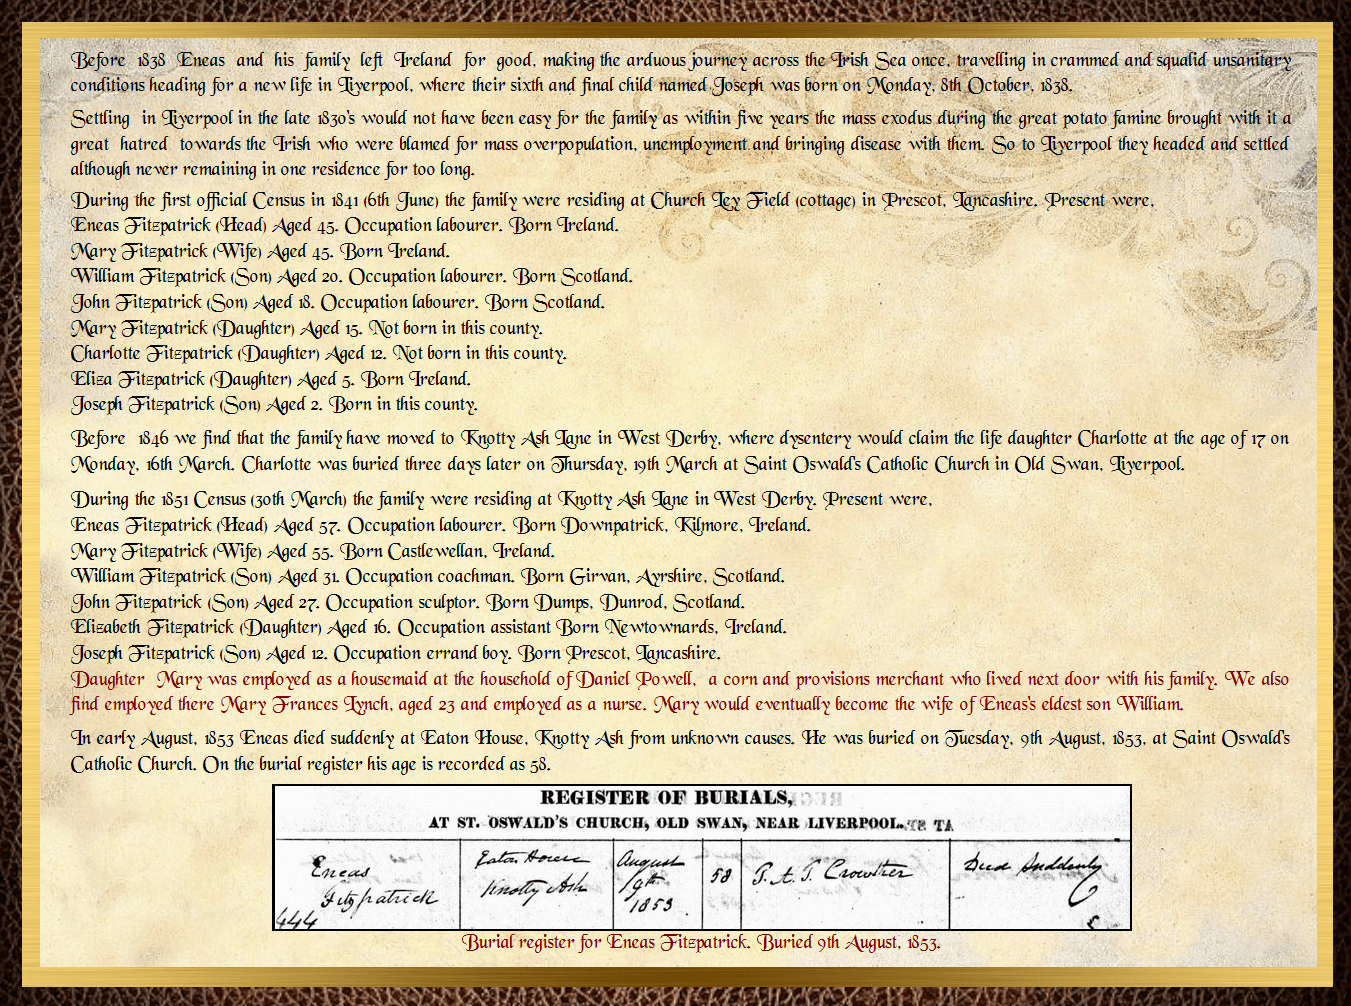 Before 1838 Eneas and his family left Ireland for good, making the arduous journey across the Irish Sea once, travelling in crammed and squalid unsanitary
conditions heading for a new life in Liverpool, where their sixth and final child named Joseph was born on Monday, 8th October, 1838.
Settling in Liverpool in the late 1830's would not have been easy for the family as within five years the mass exodus during the great potato famine brought with it a
great hatred towards the Irish who were blamed for mass overpopulation, unemployment and bringing disease with them. So to Liverpool they headed and settled
although never remaining in one residence for too long.
During the first official Census in 1841 (6th June) the family were residing at Church Ley Field (cottage) in Prescot, Lancashire. Present were,
Eneas Fitzpatrick (Head) Aged 45. Occupation labourer. Born Ireland.
Mary Fitzpatrick (Wife) Aged 45. Born Ireland.
William Fitzpatrick (Son) Aged 20. Occupation labourer. Born Scotland.
John Fitzpatrick (Son) Aged 18. Occupation labourer. Born Scotland.
Mary Fitzpatrick (Daughter) Aged 15. Not born in this county.
Charlotte Fitzpatrick (Daughter) Aged 12. Not born in this county.
Eliza Fitzpatrick (Daughter) Aged 5. Born Ireland.
Joseph Fitzpatrick (Son) Aged 2. Born in this county.
Before 1846 we find that the family have moved to Knotty Ash Lane in West Derby, where dysentery would claim the life daughter Charlotte at the age of 17 on
Monday, 16th March. Charlotte was buried three days later on Thursday, 19th March at Saint Oswald's Catholic Church in Old Swan, Liverpool.
During the 1851 Census (30th March) the family were residing at Knotty Ash Lane in West Derby. Present were,
Eneas Fitzpatrick (Head) Aged 57. Occupation labourer. Born Downpatrick, Kilmore, Ireland.
Mary Fitzpatrick (Wife) Aged 55. Born Castlewellan, Ireland.
William Fitzpatrick (Son) Aged 31. Occupation coachman. Born Girvan, Ayrshire, Scotland.
John Fitzpatrick (Son) Aged 27. Occupation sculptor. Born Dumps, Dunrod, Scotland.
Elizabeth Fitzpatrick (Daughter) Aged 16. Occupation assistant Born Newtownards, Ireland.
Joseph Fitzpatrick (Son) Aged 12. Occupation errand boy. Born Prescot, Lancashire.
Daughter Mary was employed as a housemaid at the household of Daniel Powell, a corn and provisions merchant who lived next door with his family. We also
find employed there Mary Frances Lynch, aged 23 and employed as a nurse. Mary would eventually become the wife of Eneas's eldest son William.
In early August, 1853 Eneas died suddenly at Eaton House, Knotty Ash from unknown causes. He was buried on Tuesday, 9th August, 1853, at Saint Oswald's
Catholic Church. On the burial register his age is recorded as 58.
REGISTER OF BURIALS,
AT ST. OSWALD'S CHURCH, OLD SWAN, NEAR LIVERPOOL.
Eneas Fitzpatrick
Eaton House Knotty Ash
August 9th 1853
58
Crowther
Died Suddenly
444
Burial register for Eneas Fitzpatrick. Buried 9th August, 1853.